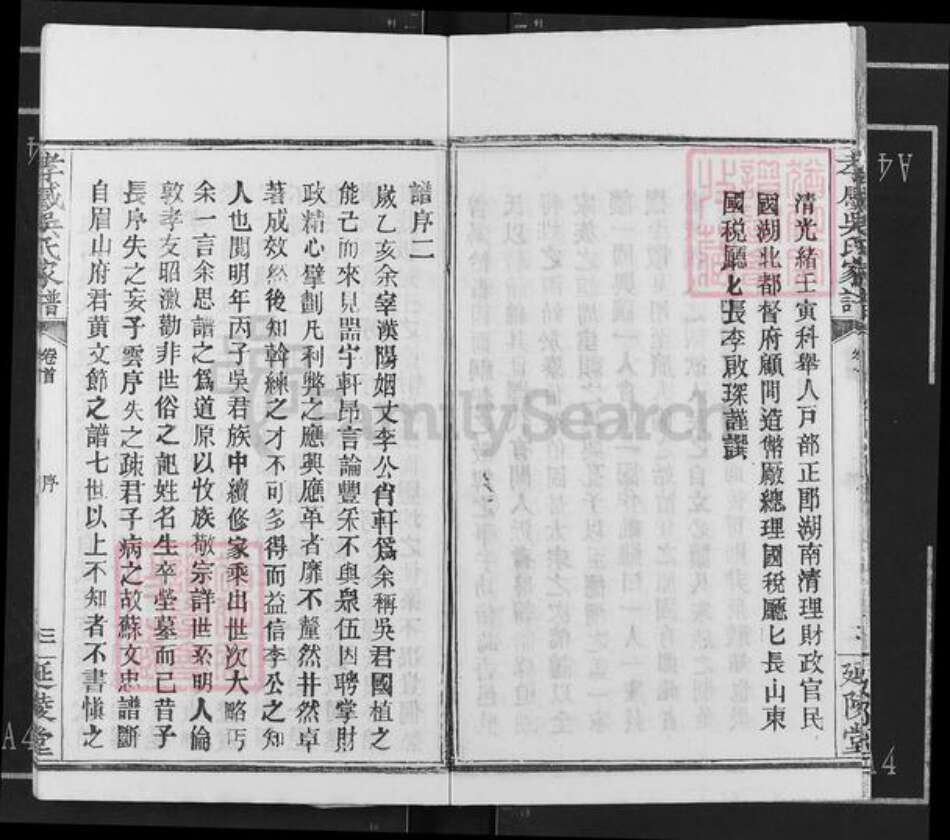 清光緒壬寅科舉人戸部正郎湖南清理財政官民
國湖北都督府顧問造幣廠總理國税廳長山東
國税廳長李啟琛謹譔
譜序二
嵗乙亥余宰漢陽姻丈李公肖軒爲余稱吳君國植之
能已而來見器宇軒昂言論豐采不與衆伍因聘掌財
政精心擘劃凡利弊之應興應革者靡不釐然井然卓
著成效然後知幹練之才不可多得而益信李公之知
人也閲明年丙子吳君族中續修家乘出世次大略丐
余一言余思譜之爲道原以收族敬宗詳世系明人倫
敦孝友昭激勸非世俗之記姓名生卒塋墓而已昔子
長序失之妄子雲序失之疎君子病之故蘇文忠譜斷
自眉山府君黄文節之譜七世以上不知者不書愼之
孝感吳氏家譜
卷首
序
三
延陵堂
孝感吳氏家譜
延陵堂
FamilySearch
A4
A4
A4